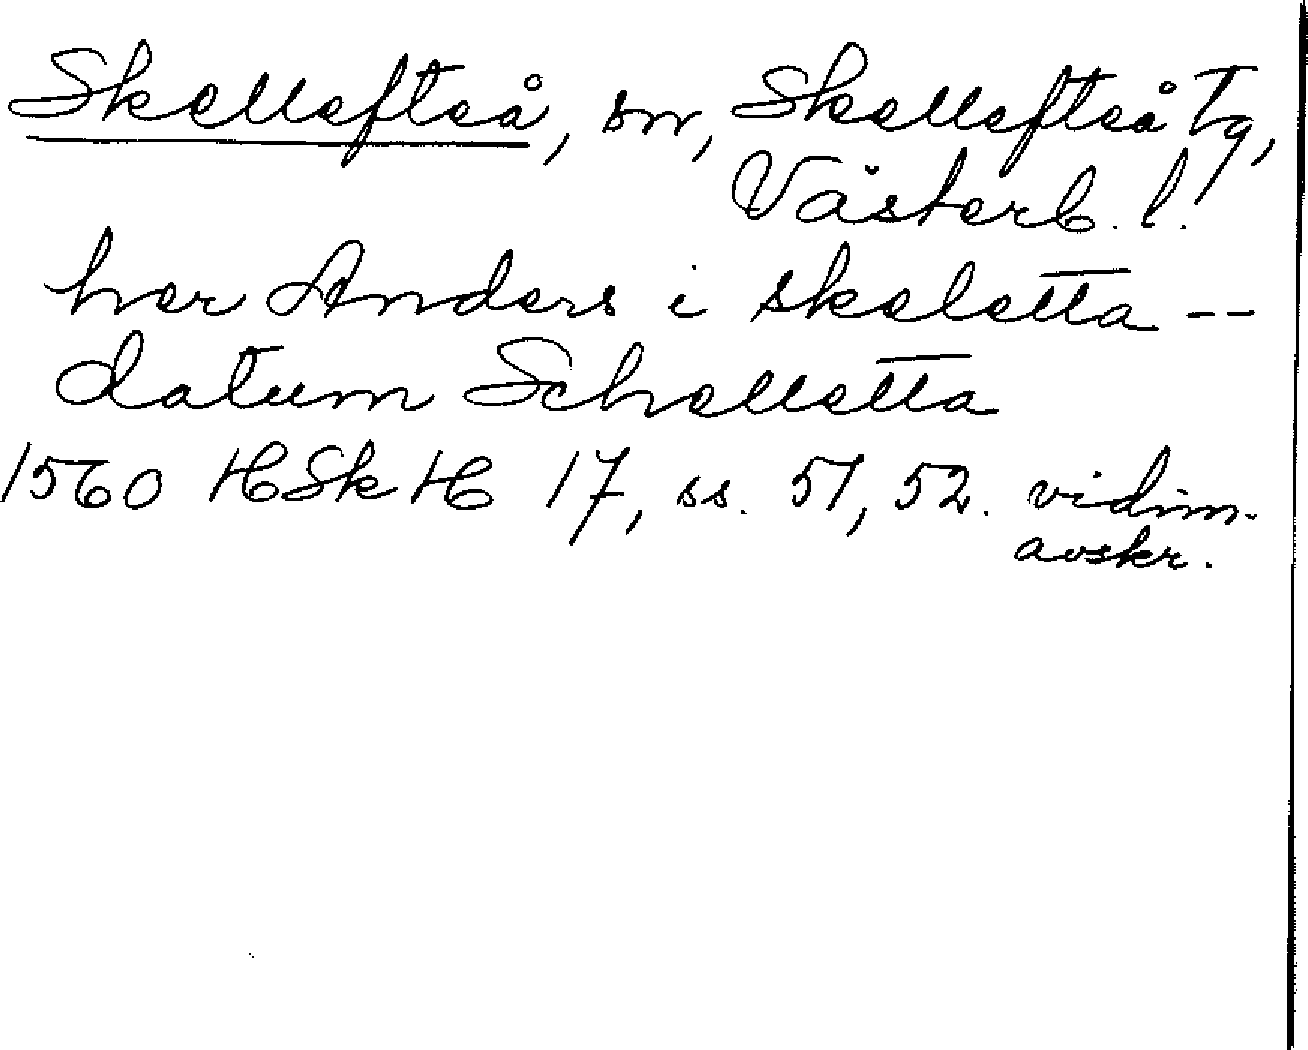 Skellefteå, sn, Skellefteå Tg,
Västerb. l.
her Anders i skeletta --
datum Schelletta
1560 HSkH 17, ss. 51, 52. vidim.
avskr.